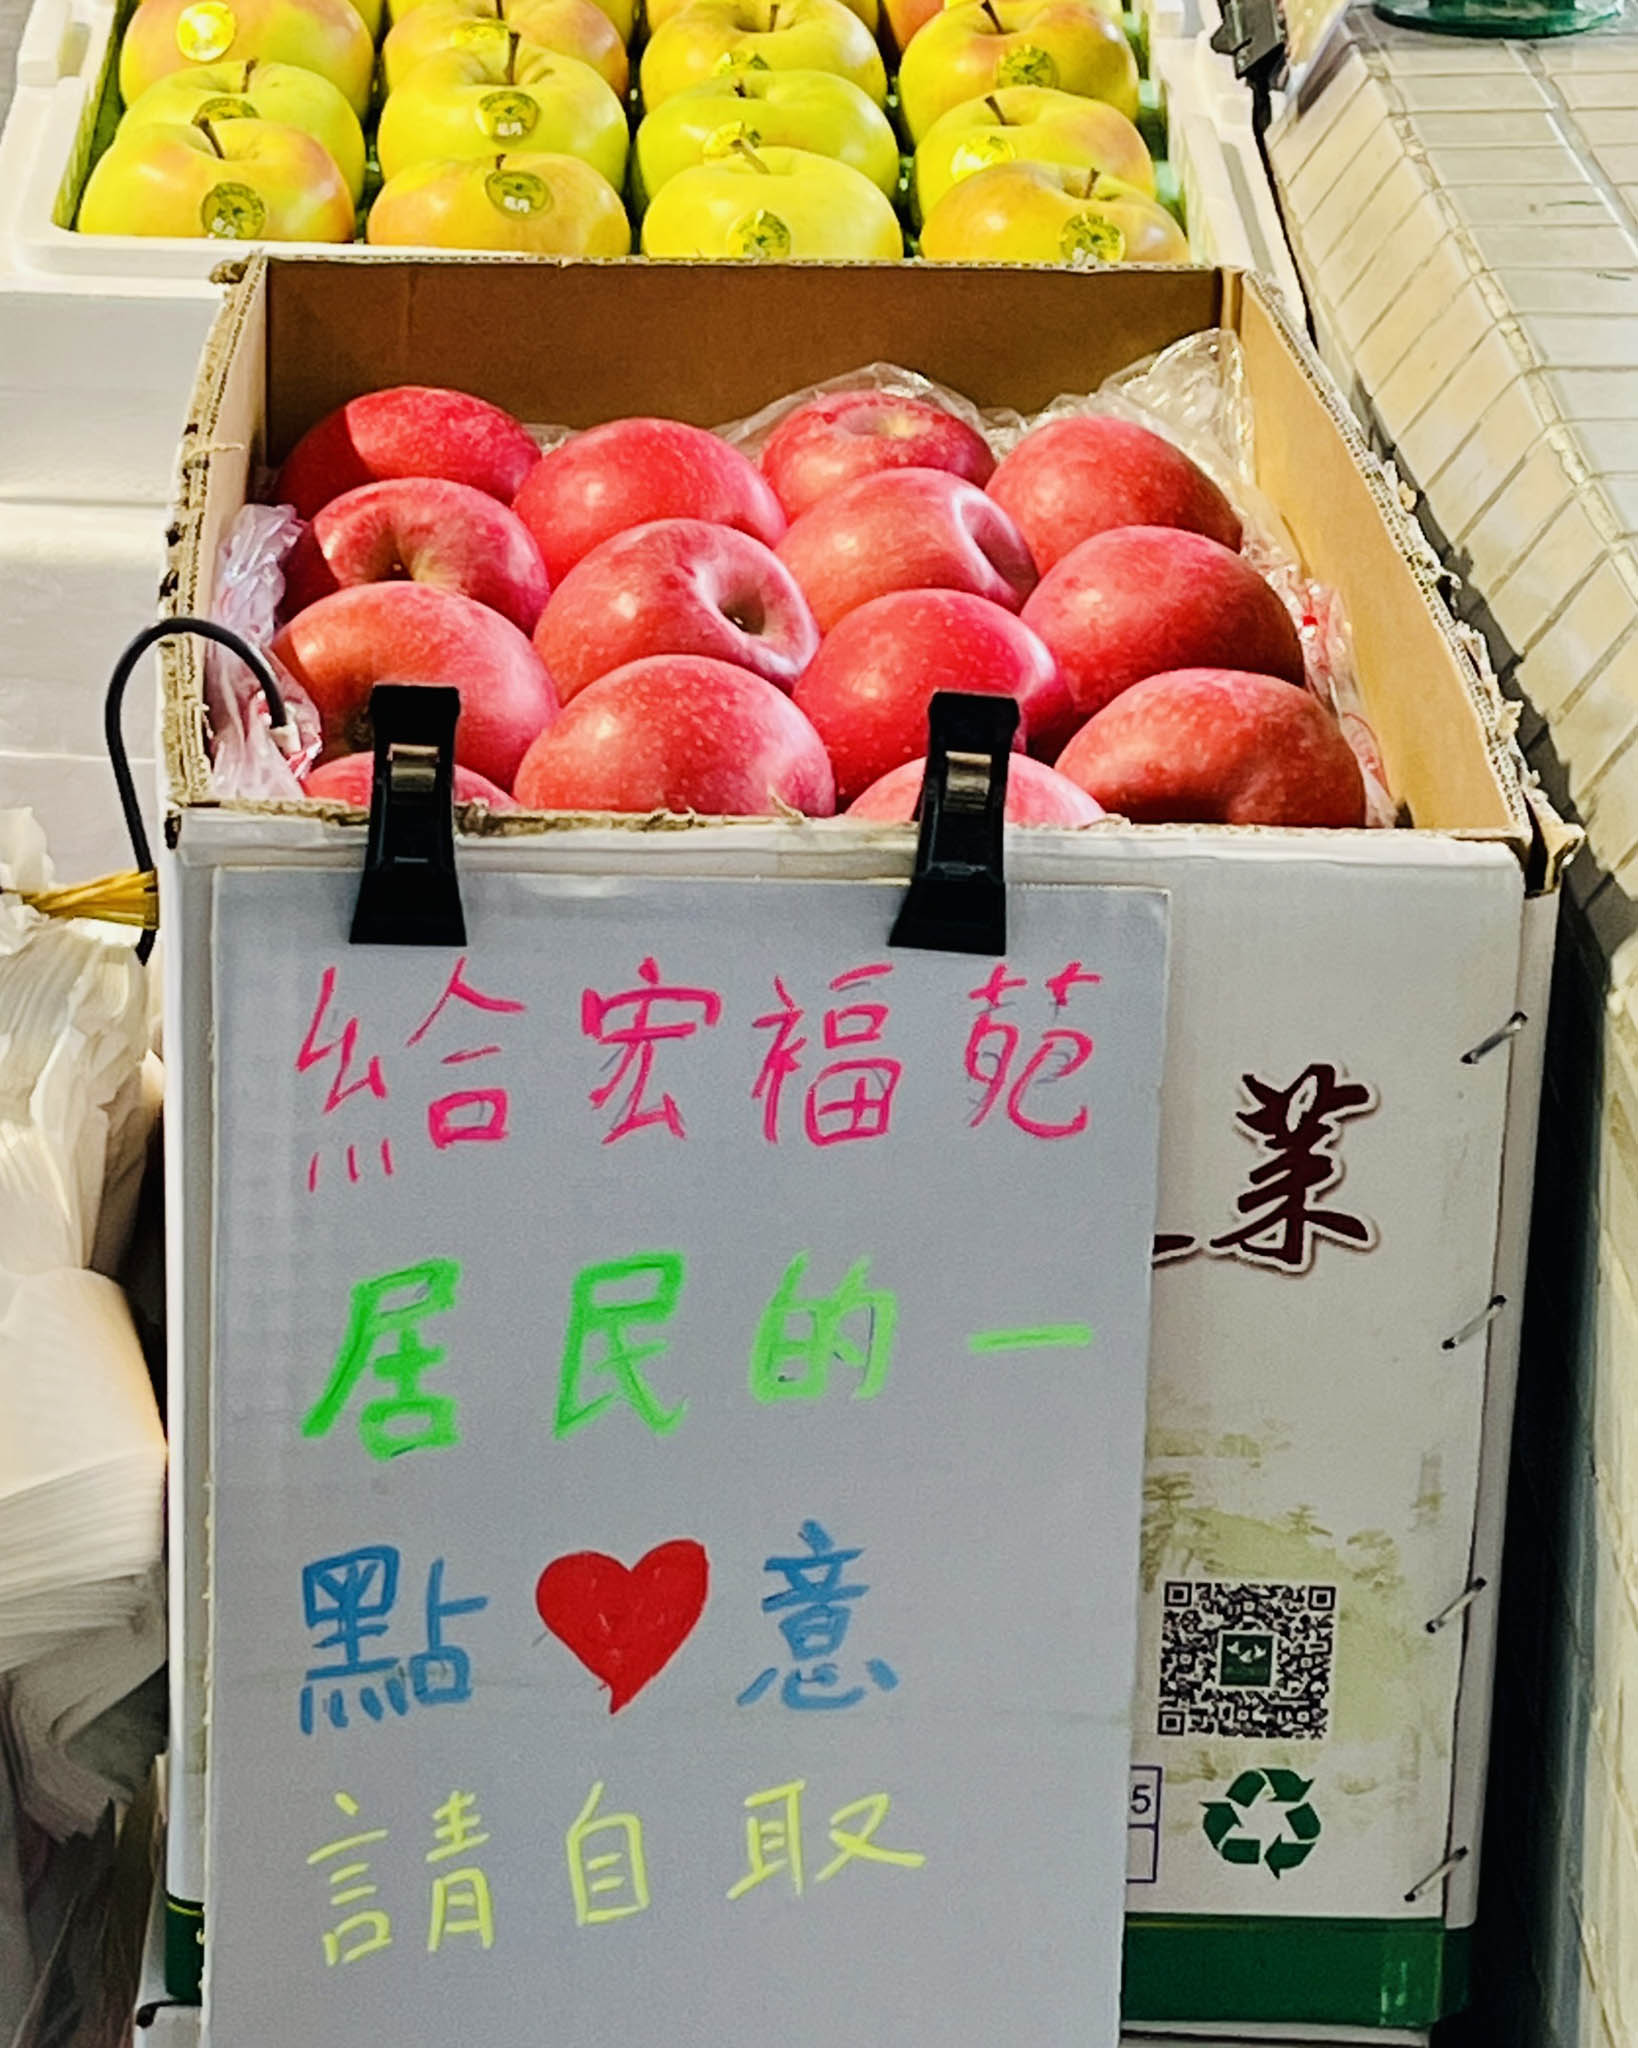 給宏福苑
居民的一
點❤意
請自取
業
5